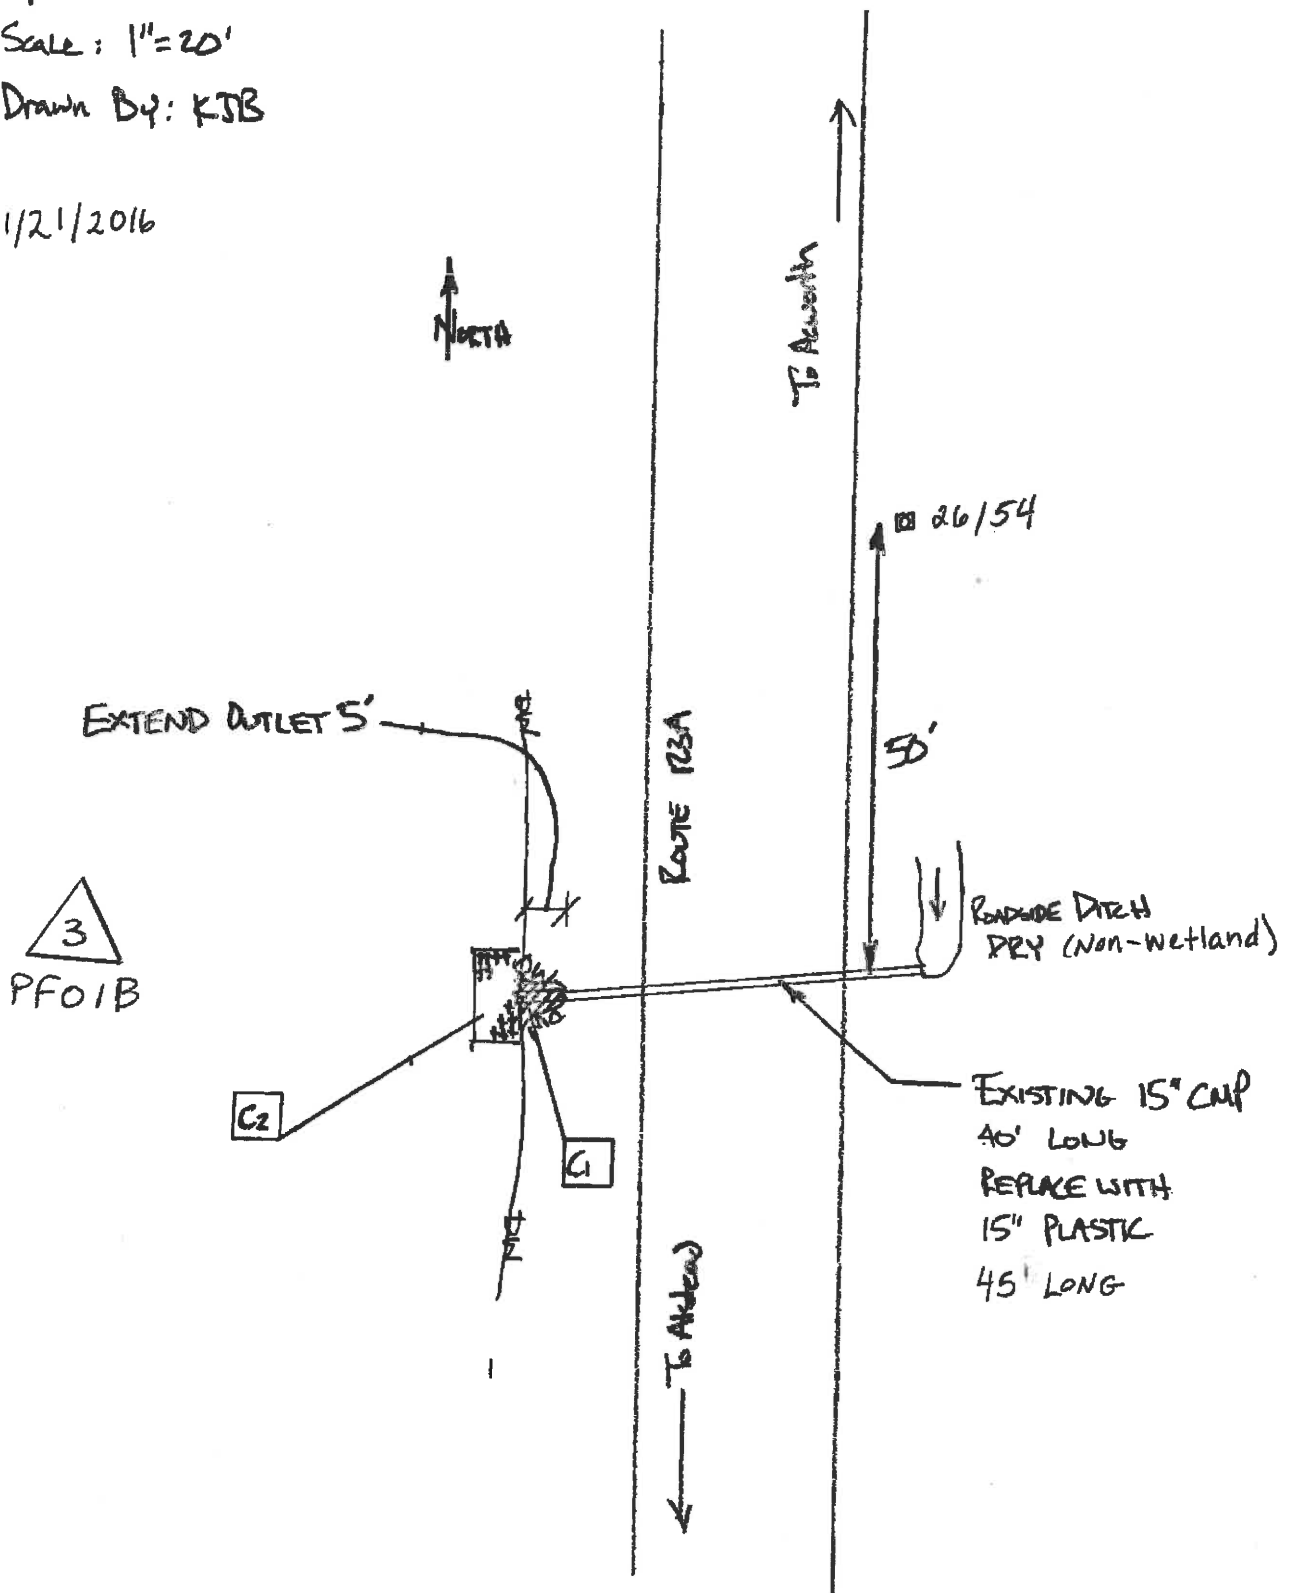 Scale: 1"=20'
Drawn By: KJB
1/21/2016
NORTH
To Acworth
26/54
EXTEND OUTLET 5'
ROUTE 123A
50'
3
PFO1B
ROADSIDE DITCH
DRY (Non-wetland)
C2
C1
EXISTING 15" CMP
40' LONG
REPLACE WITH
15" PLASTIC
45' LONG
To Alstead